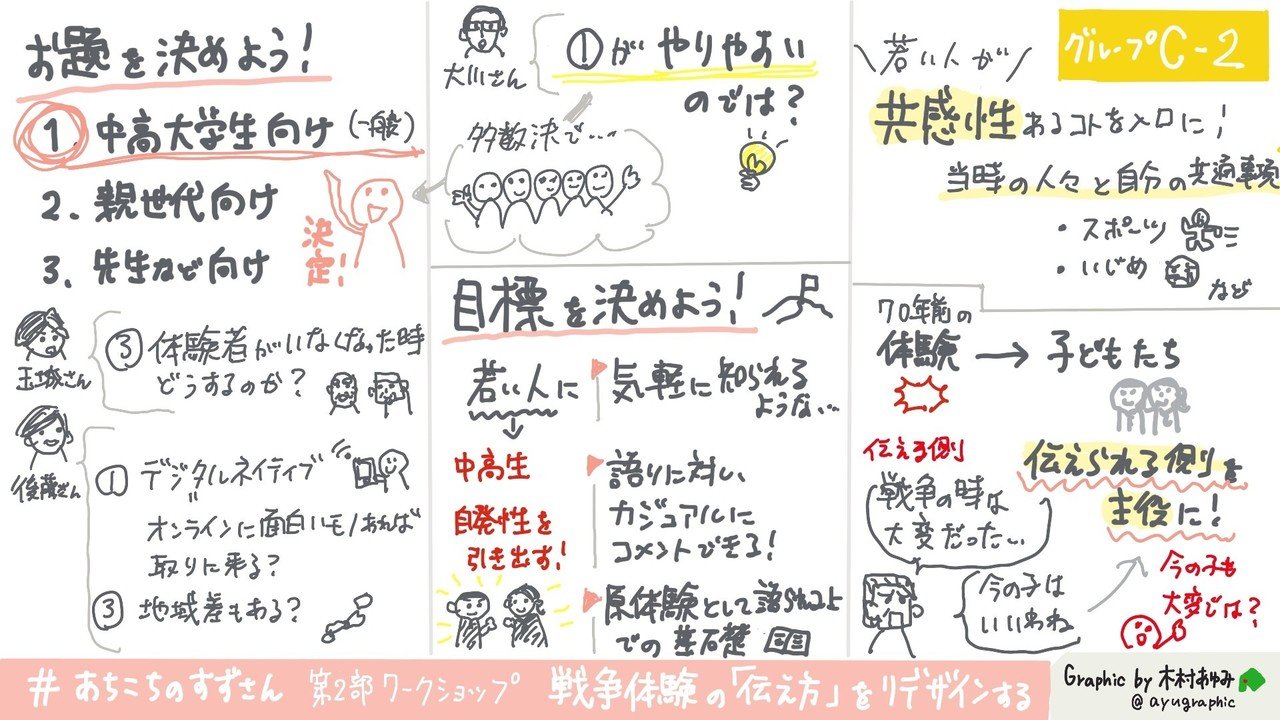 お題を決めよう!
1. 中高大学生向け(一般)
2. 親世代向け
3. 先生など向け
決定!
玉城さん
③ 体験者がいなくなった時
どうするのか?
後藤さん
① デジタルネイティブ
オンラインに面白いモノあれば
取りに来る?
③ 地域差もある?
大川さん
①がやりやすい
のでは?
多数決で……
目標を決めよう!
若い人に
中高生
自発性を
引き出す!
気軽に知られる
ような…
語りに対し
カジュアルに
コメントできる!
原体験として語られるコト
での基礎
グループC-2
若い人が
共感性あるコトを入口に!
当時の人々と自分の共通事項
・スポーツ
・いじめ
など
70年前の
体験 → 子どもたち
伝える側
戦争の時は
大変だった…
今の子は
いいわね
伝えられる側を
主役に!
今の子も
大変では?
#あちこちのすずさん 第2部ワークショップ 戦争体験の「伝え方」をリデザインする
Graphic by 木村あゆみ
@ayugraphic